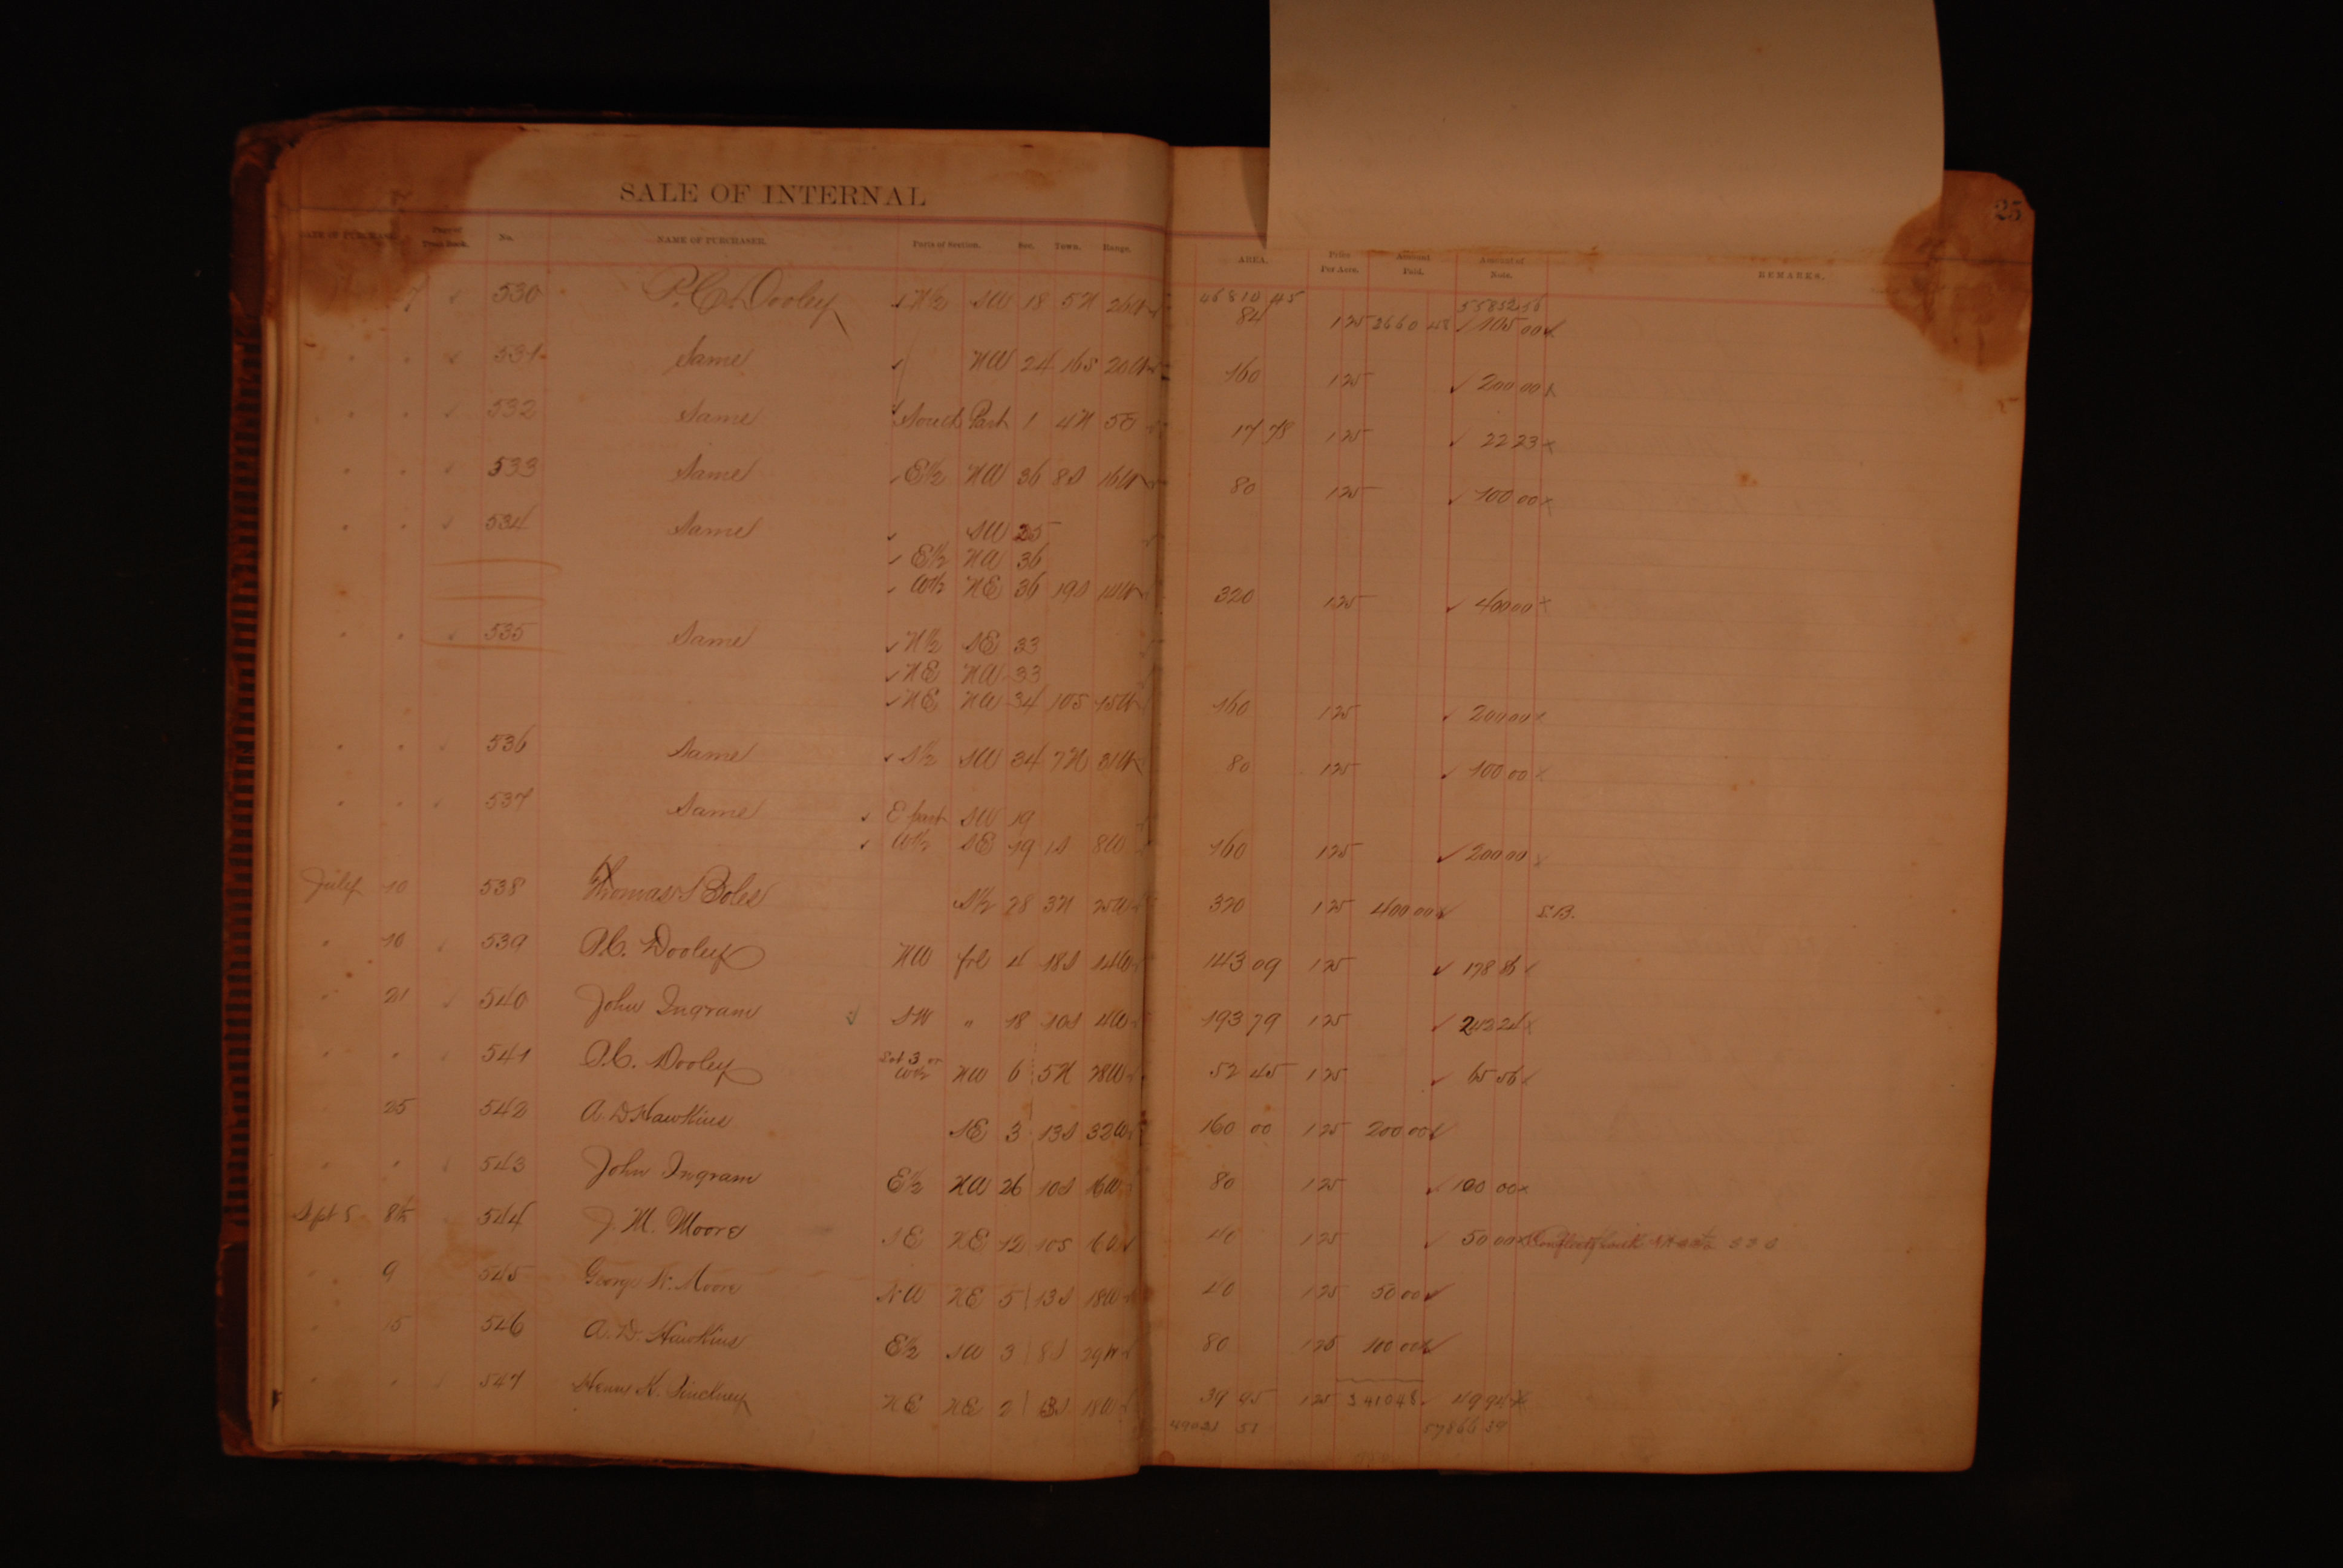 SALE OF INTERNAL
25
DATE OF PURCHASE. Page of Tract Book. No. NAME OF PURCHASER. Parts of Section. Sec. Town. Range. AREA. Price Per Acre. Amount Paid. Amount of Note. REMARKS.
46810 45 55852 56
7 530 P.C. Dooley N½ SW 18 5N 26W 84 1 25 2660 48 105 00
" " 531 Same NW 24 16S 20W 160 1 25 200 00
" " 532 Same South Part 1 4N 5E 17 78 1 25 22 23
" " 533 Same E½ NW 36 8S 16W 80 1 25 100 00
" " 534 Same SW 25
E½ NW 36
W½ NE 36 19S 14W 320 1 25 400 00
" " 535 Same N½ SE 33
NE NW 33
NE NW 34 10S 15W 160 1 25 200 00
" " 536 Same S½ SW 34 7N 31W 80 1 25 100 00
" " 537 Same E part SW 19
W½ SE 19 1S 8W 160 1 25 200 00
July 10 538 Thomas Boles S½ 28 3N 25W 320 1 25 400 00 S.B.
" 10 539 P.C. Dooley NW frl 4 18S 14W 143 09 1 25 178 86
" 21 540 John Ingram SW " 18 10S 4W 193 79 1 25 242 24
" " 541 P.C. Dooley Lot 3 or W½ NW 6 5N 28W 52 45 1 25 65 56
25 542 A.D. Hawkins SE 3 13S 32W 160 00 1 25 200 00
" " 543 John Ingram E½ NW 26 10S 16W 80 1 25 100 00
Sept 8th 544 J. M. Moore SE NE 12 10S 6W 40 1 25 50 00
" 9 545 George W. Moore NW NE 5 13S 18W 40 1 25 50 00
" 15 546 A. D. Hawkins E½ SW 3 8S 29W 80 1 25 100 00
" " 547 Henry K. Pinckney NE NE 2 13S 18W 39 95 1 25 3410 48 49 94
49021 51 57866 39